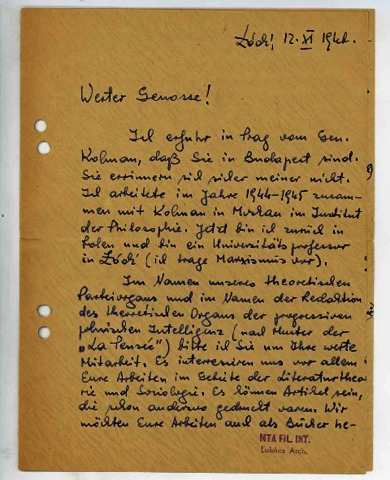 Łódź, 12.XI 1946.
Werter Genosse!
Ich erfuhr in Prag vom Gen.
Kolman, daß Sie in Budapest sind.
Sie errinnern sich sicher meiner nicht.
Ich arbeitete im Jahre 1944-1945 zusam-
men mit Kolman in Moskau im Institut
der Philosophie. Jetzt bin ich zurück in
Polen und bin ein Universitätsprofessor
in Łódź (ich trage Marxismus vor).
Im Namen unseres theoretischen
Parteiorgans und im Namen der Redaktion
des theoretischen Organs der progressiven
polnischen Intelligenz (nach Muster der
"La Pensée") bitte ich Sie um Ihre werte
Mitarbeit. Es interessieren uns vor allem
Eure Arbeiten im Gebiete der Literaturtheo-
rie und Soziologie. Es können Artikel sein,
die schon anderswo gedruckt waren. Wir
möchten Eure Arbeiten auch als Bücher he-
MTA FIL. INT.
Lukács Arch.